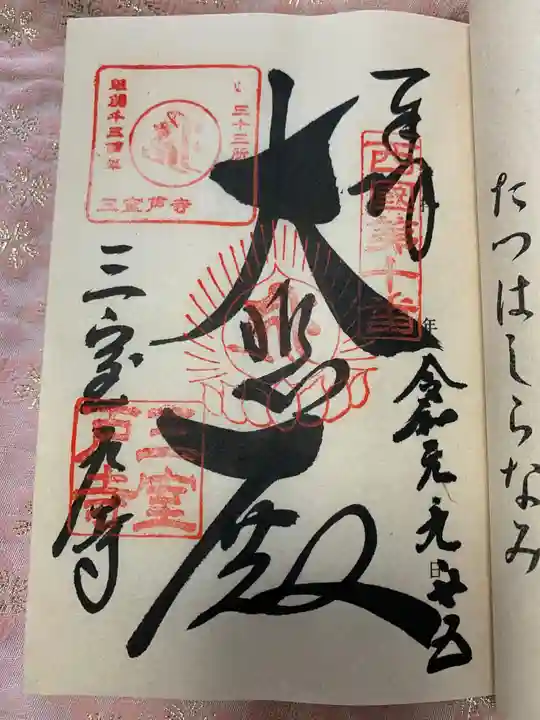 たつはしらなみ
奉拝
西國第十番
年
令和元
日
大悲殿
三十三所
草創千三百年
三室戸寺
三室戸寺
三室戸寺